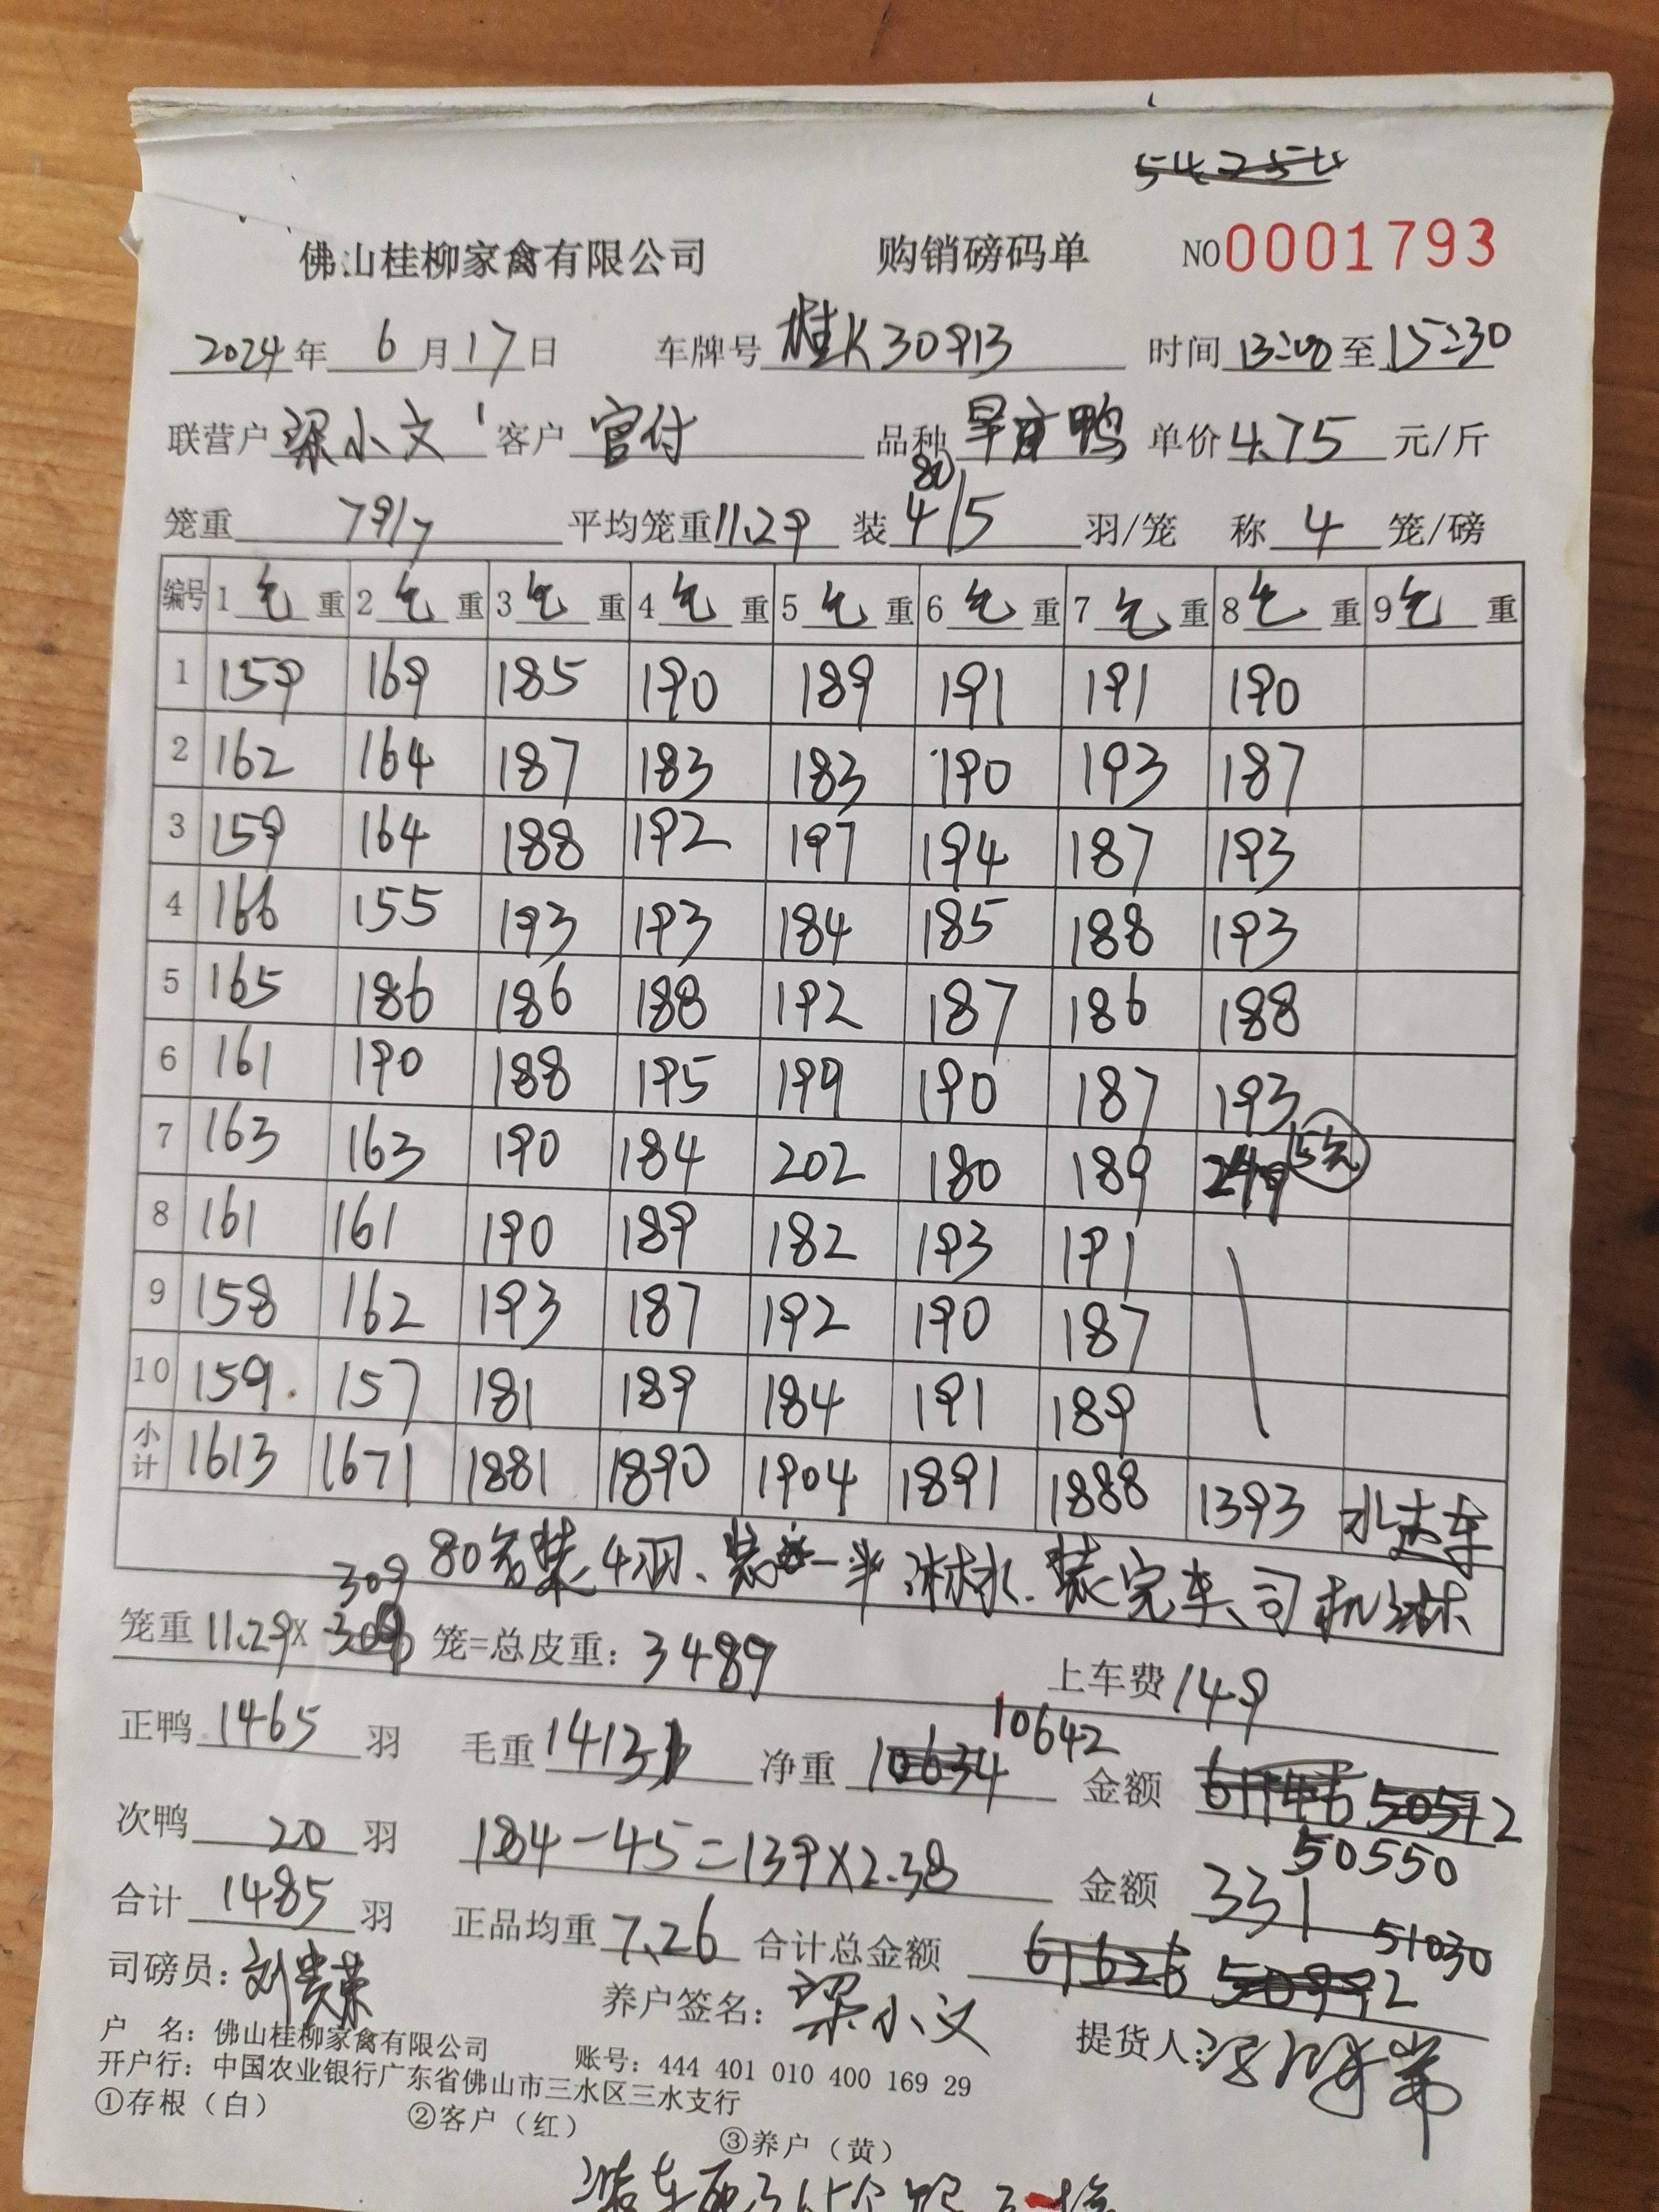 54254
佛山桂柳家禽有限公司 购销磅码单 NO 0001793
2024年 6月17日 车牌号 桂K30913 时间 13:00 至 15:30
联营户 梁小文 客户 官付 品种 旱亩鸭 单价 4.75 元/斤
80
笼重 79/7 平均笼重 11.29 装 4/5 羽/笼 称 4 笼/磅
编号 1 毛 重 2 毛 重 3 毛 重 4 毛 重 5 毛 重 6 毛 重 7 毛 重 8 毛 重 9 毛 重
1 159 169 185 190 189 191 191 190
2 162 164 187 183 183 190 193 187
3 159 164 188 192 197 194 187 193
4 166 155 193 193 184 185 188 193
5 165 186 186 188 192 187 186 188
6 161 190 188 195 199 190 187 193
7 163 163 190 184 202 180 189 249 15羽
8 161 161 190 189 182 193 191
9 158 162 193 187 192 190 187
10 159 157 181 189 184 191 189
小计 1613 1671 1881 1890 1904 1891 1888 1393 水边车
80笼装4羽、装一半淋水、装完车、司机淋
309
笼重 11.29× 笼=总皮重: 3489 上车费 149
10642
正鸭 1465 羽 毛重 14131 净重 10634 金额 61146 50512
50550
次鸭 20 羽 184-45=139×2.38 金额 331
合计 1485 羽 正品均重 7.26 合计总金额 61626 50992 51030
司磅员: 刘贵荣 养户签名: 梁小文 提货人:
户 名: 佛山桂柳家禽有限公司 账号: 444 401 010 400 169 29
开户行: 中国农业银行广东省佛山市三水区三水支行
①存根（白） ②客户（红） ③养户（黄）